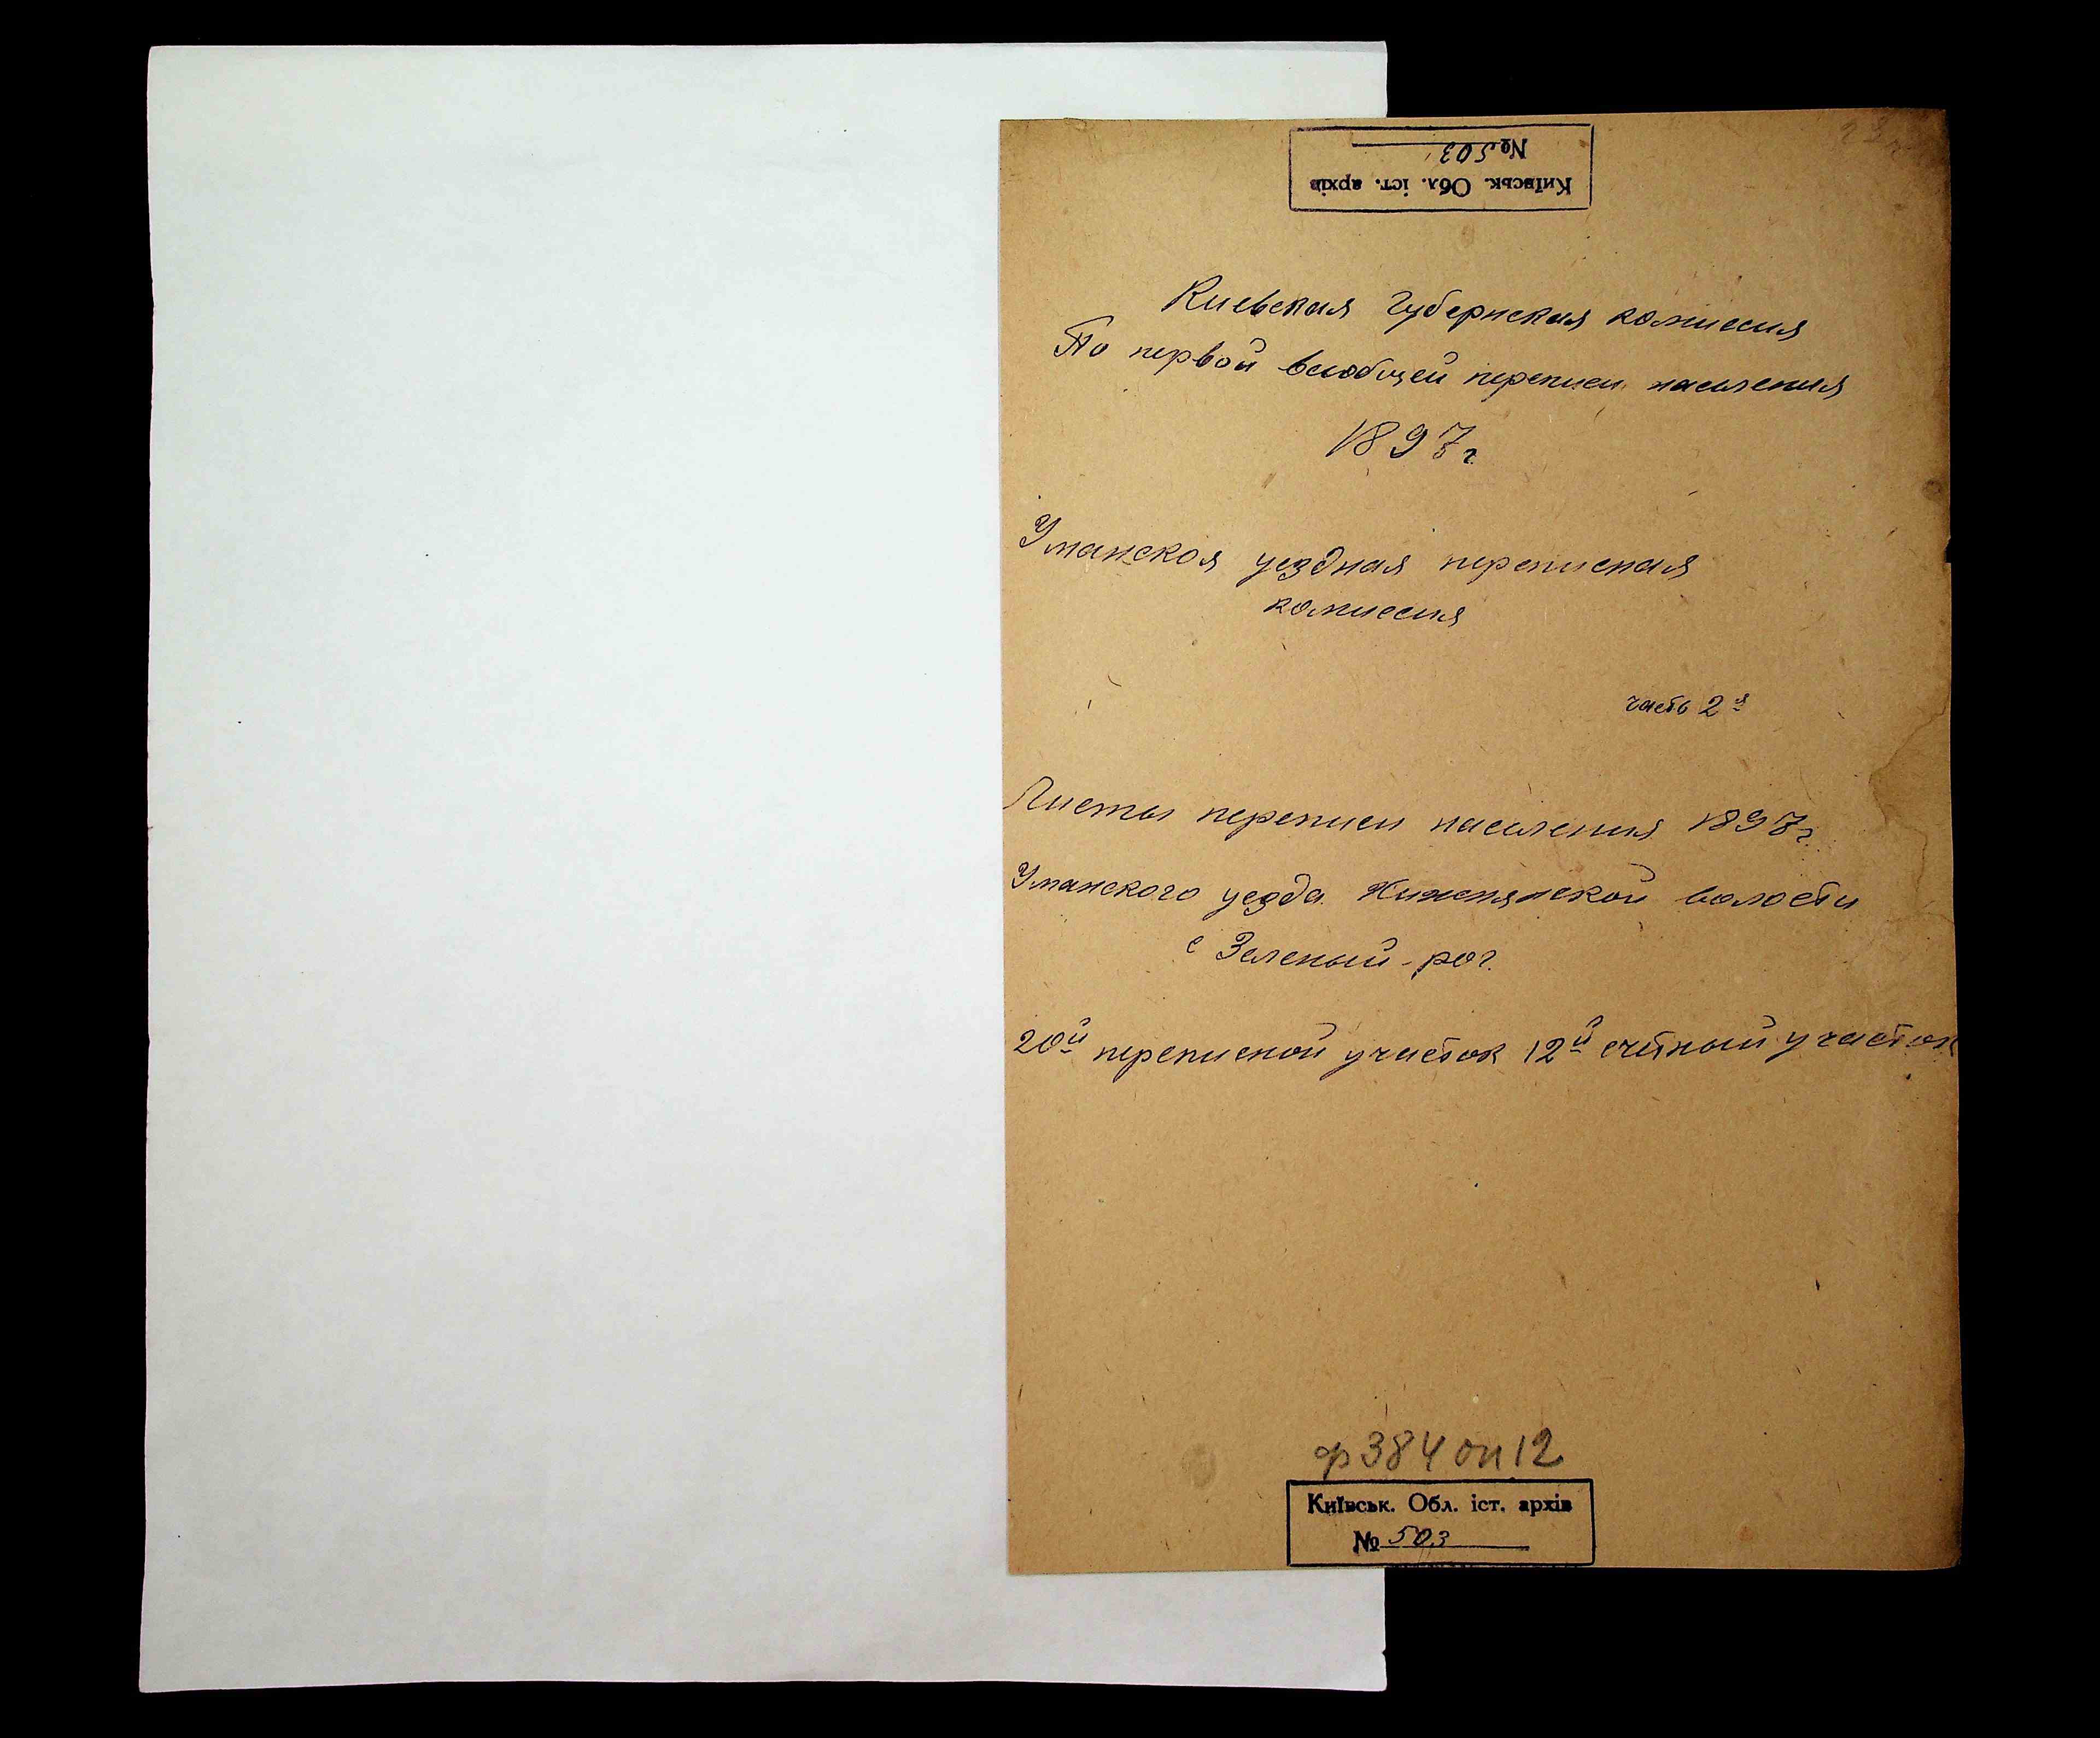 Київськ. Обл. іст. архів
№ 503
Киевская губернская комиссия
По первой всеобщей переписи населения
1897 г.
Уманская уездная переписная
комиссия
часть 2я
Листы переписи населения 1897 г.
Уманского уезда волости
с Зеленый-рог.
20й переписной участок 12й счётный участок
ф 384 оп 12
Київськ. Обл. іст. архів
№ 503